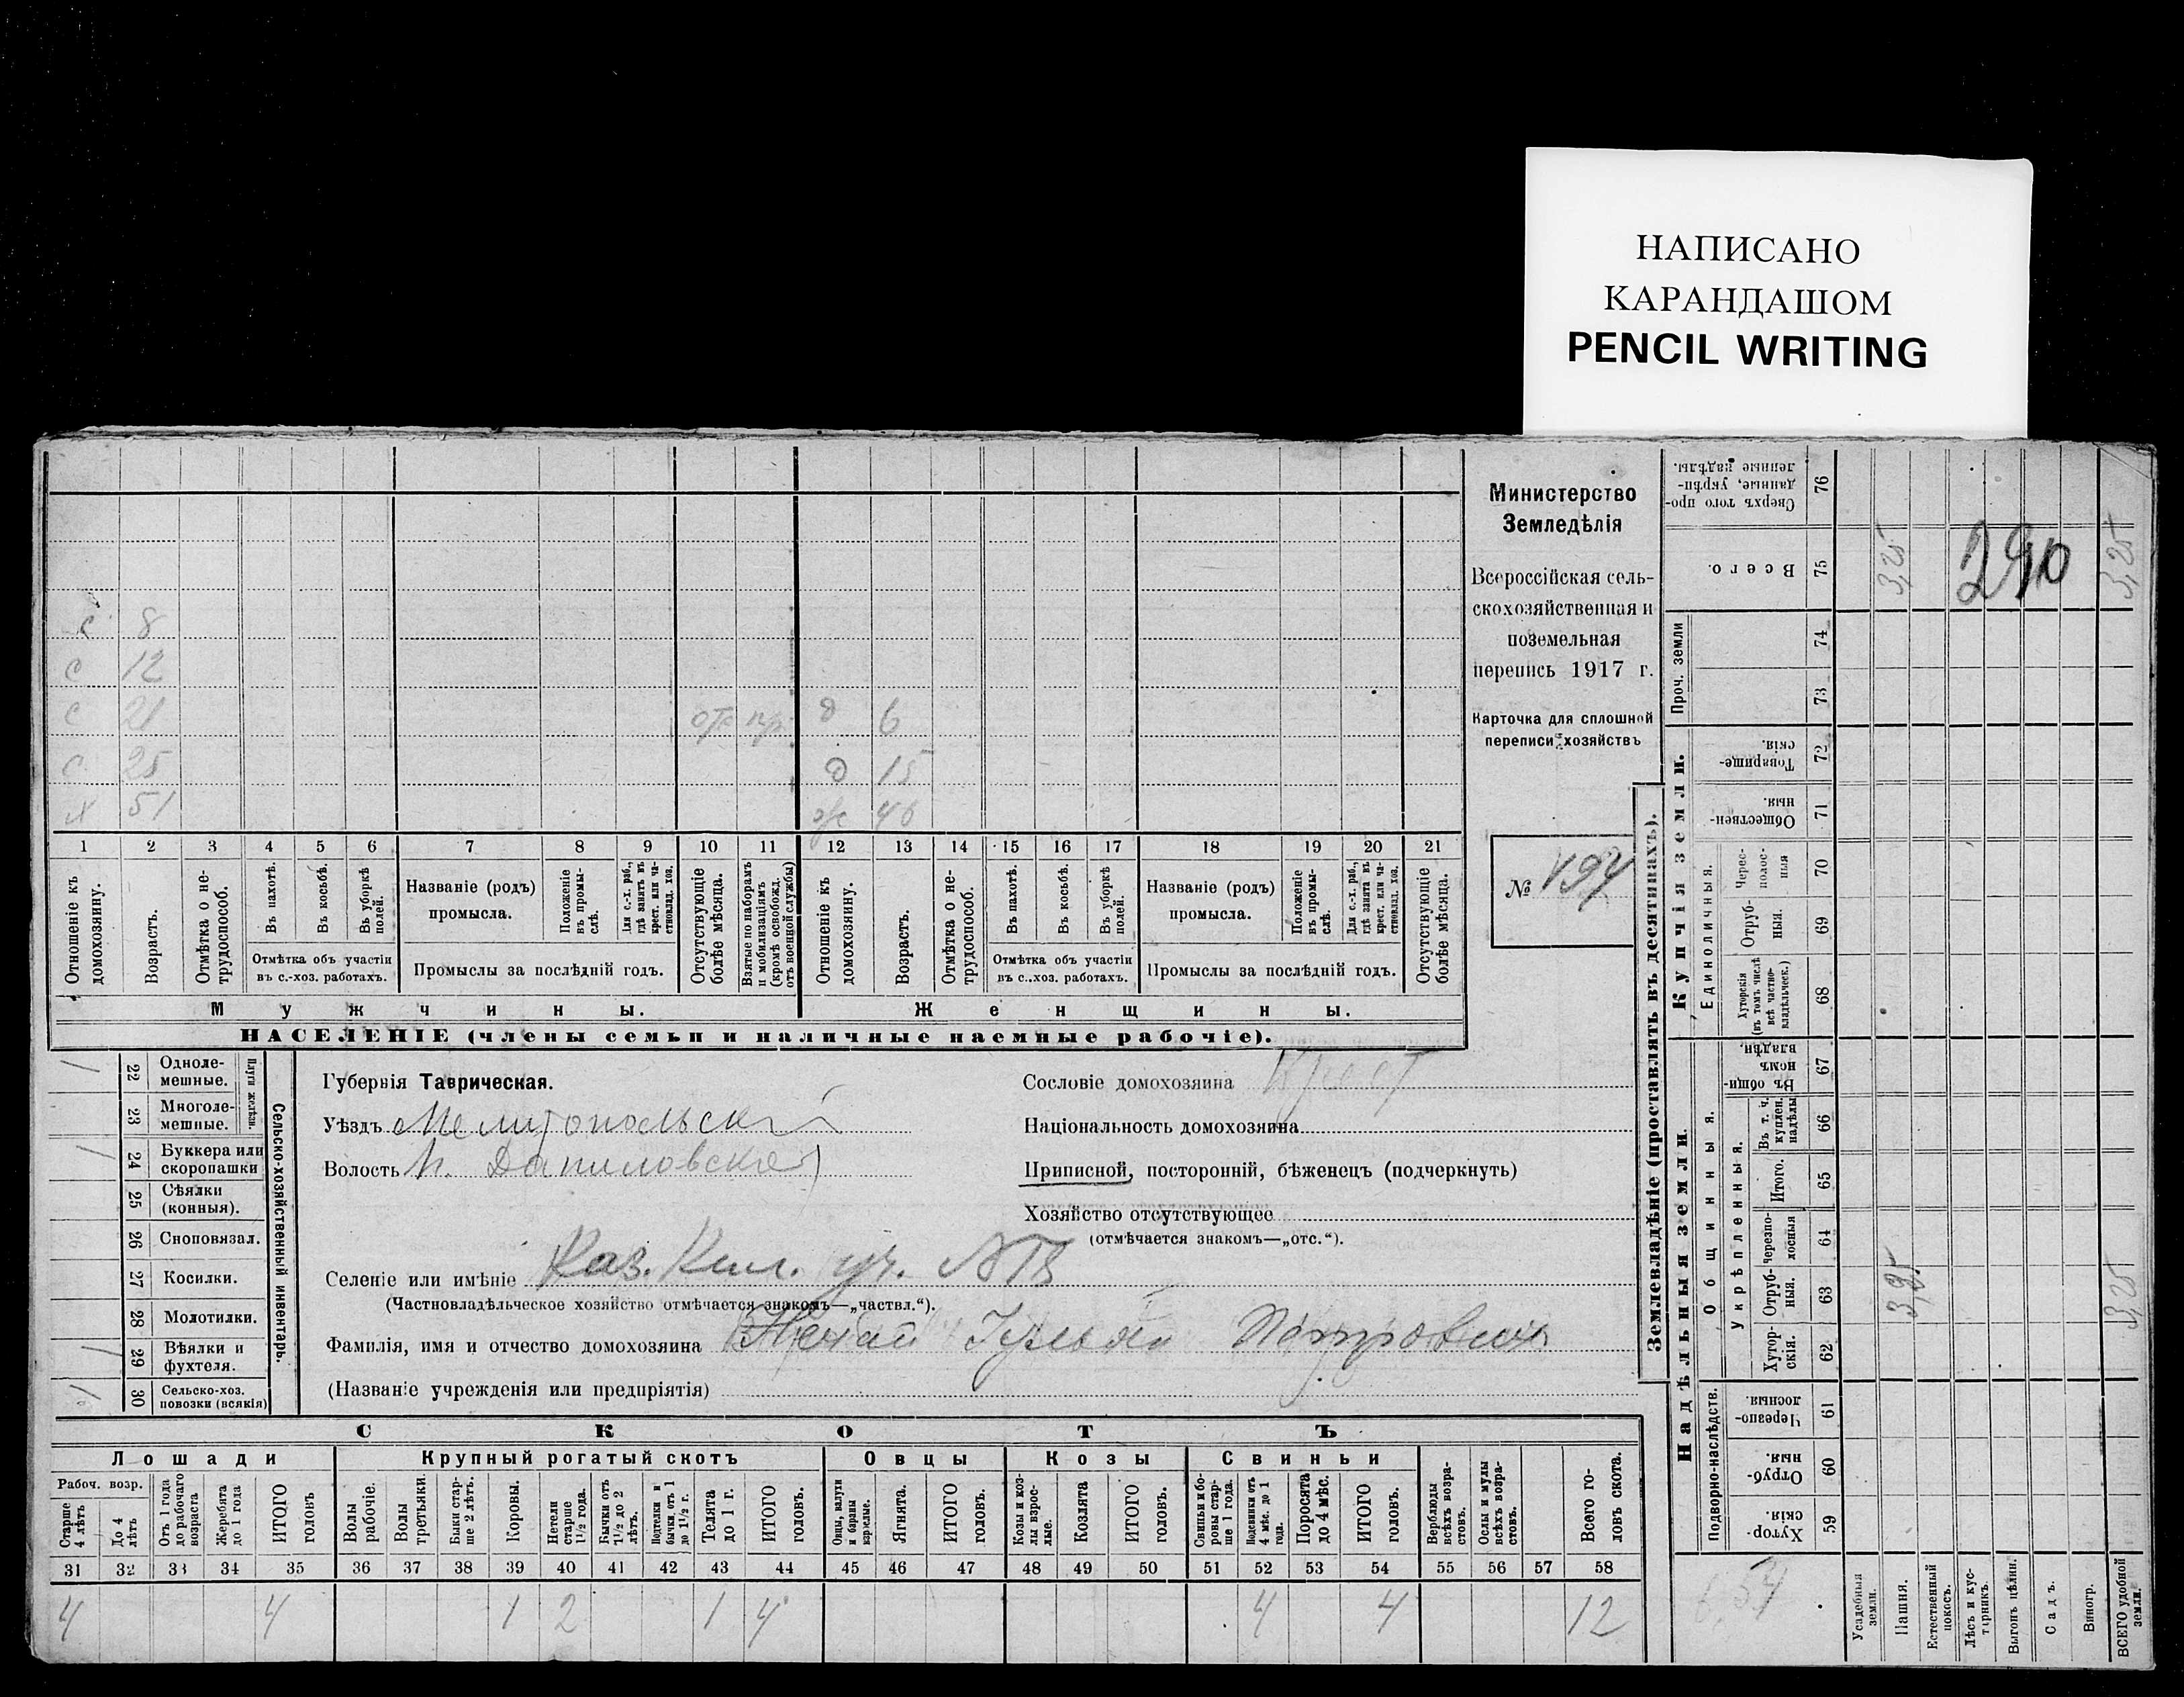 НАПИСАНО
КАРАНДАШОМ
PENCIL WRITING
с 8
с 12
с 21 отс пр. д 6
с 25 д 15
х 51 ж 46
1 2 3 4 5 6 7 8 9 10 11 12 13 14 15 16 17 18 19 20 21
Отношеніе къ домохозяину.
Возрастъ.
Отмѣтка о не-трудоспособ.
Въ пахотѣ.
Въ косьбѣ.
Въ уборкѣ полей.
Отмѣтка объ участіи
въ с.-хоз. работахъ.
Названіе (родъ)
промысла.
Положеніе въ промы-слѣ.
Для с.-х. раб., гдѣ занятъ въ крест. или ча-стновлад. хоз.
Промыслы за послѣдній годъ.
Отсутствующіе болѣе мѣсяца.
Взятые по наборамъ и мобилизаціямъ (кромѣ освобожд. отъ военной службы)
Отношеніе къ домохозяину.
Возрастъ.
Отмѣтка о не-трудоспособ.
Въ пахотѣ.
Въ косьбѣ.
Въ уборкѣ полей.
Отмѣтка объ участіи
въ с.-хоз. работахъ.
Названіе (родъ)
промысла.
Положеніе въ промы-слѣ.
Для с.-х. раб., гдѣ занята въ крест. или ча-стновлад. хоз.
Промыслы за послѣдній годъ.
Отсутствующіе болѣе мѣсяца.
Мужчины.
Женщины.
НАСЕЛЕНІЕ (члены семьи и наличные наемные рабочіе).
Министерство
Земледѣлія
Всероссійская сель-
скохозяйственная и
поземельная
перепись 1917 г.
Карточка для сплошной
переписи хозяйствъ
№ 194
1 22 Одноле-мешные.
23 Многоле-мешные.
Плуги желѣзн.
1 24 Буккера или скоропашки
25 Сѣялки (конныя).
26 Сноповязал.
27 Косилки.
28 Молотилки.
1 29 Вѣялки и фухтеля.
1 30 Сельско-хоз. повозки (всякія)
Сельско-хозяйственный инвентарь.
Губернія Таврическая.
Уѣздъ Мелитопольскій
Волость Н. Даниловская
Селеніе или имѣніе Каз. Кил. уч.
(Частновладѣльческое хозяйство отмѣчается знакомъ—„частвл.“).
Фамилія, имя и отчество домохозяина Петрович
(Названіе учрежденія или предпріятія)
Сословіе домохозяина Крест
Національность домохозяина
Приписной, посторонній, бѣженецъ (подчеркнуть)
Хозяйство отсутствующее
(отмѣчается знакомъ—„отс.“).
СКОТЪ
Лошади
Крупный рогатый скотъ
Овцы
Козы
Свиньи
Рабоч. возр.
Старше 4 лѣтъ
До 4 лѣтъ
Отъ 1 года до рабочаго возраста
Жеребята до 1 года
ИТОГО головъ
Волы рабочіе.
Волы третьяки.
Быки стар-ше 2 лѣтъ.
Коровы.
Нетели старше 1½ года.
Бычки отъ 1½ до 2 лѣтъ.
Подтелки и бычки отъ 1 до 1½ г.
Телята до 1 г.
ИТОГО головъ.
Овцы, валухи и бараны взрослые.
Ягнята.
ИТОГО головъ.
Козы и коз-лы взрос-лые.
Козлята
ИТОГО головъ.
Свиньи и бо-ровы стар-ше 1 года.
Подсвинки отъ 4 мѣс. до 1 года.
Поросята до 4 мѣс.
ИТОГО головъ.
Верблюды всѣхъ возра-стовъ.
Ослы и мулы всѣхъ возра-стовъ.
Всего го-ловъ скота.
31 32 33 34 35 36 37 38 39 40 41 42 43 44 45 46 47 48 49 50 51 52 53 54 55 56 57 58
4 4 1 2 1 4 4 4 12
Землевладѣніе (проставлять въ десятинахъ).
Купчія земли.
Надѣльныя земли
Сверхъ того про-данные, укрѣп-ленные надѣлы. 76
Всего. 75 3,25 3,25
290
Проч. земли
74
73
Товарище-скія. 72
Обществен-ныя. 71
Единоличныя.
Черес-полос-ныя 70
Отруб-ныя. 69
Хуторскія (въ томъ числѣ всѣ частно-владѣльческ.) 68
Общинныя.
Въ общин-номъ владѣн. 67
Укрѣпленныя.
Въ т. ч. куплен. надѣлы 66
Итого. 65
Черезпо-лосныя 64
Отруб-ныя. 63 3,25 3,25
Хутор-скія. 62
Подворно-наслѣдств.
Черезпо-лосныя 61
Отруб-ныя 60
Хутор-скія. 59
6,54
Усадебныя земли.
Пашня.
Естественный покосъ.
Лѣсъ и кус-тарникъ.
Выгонъ цѣлин.
Садъ.
Виногр.
ВСЕГО удобной земли.